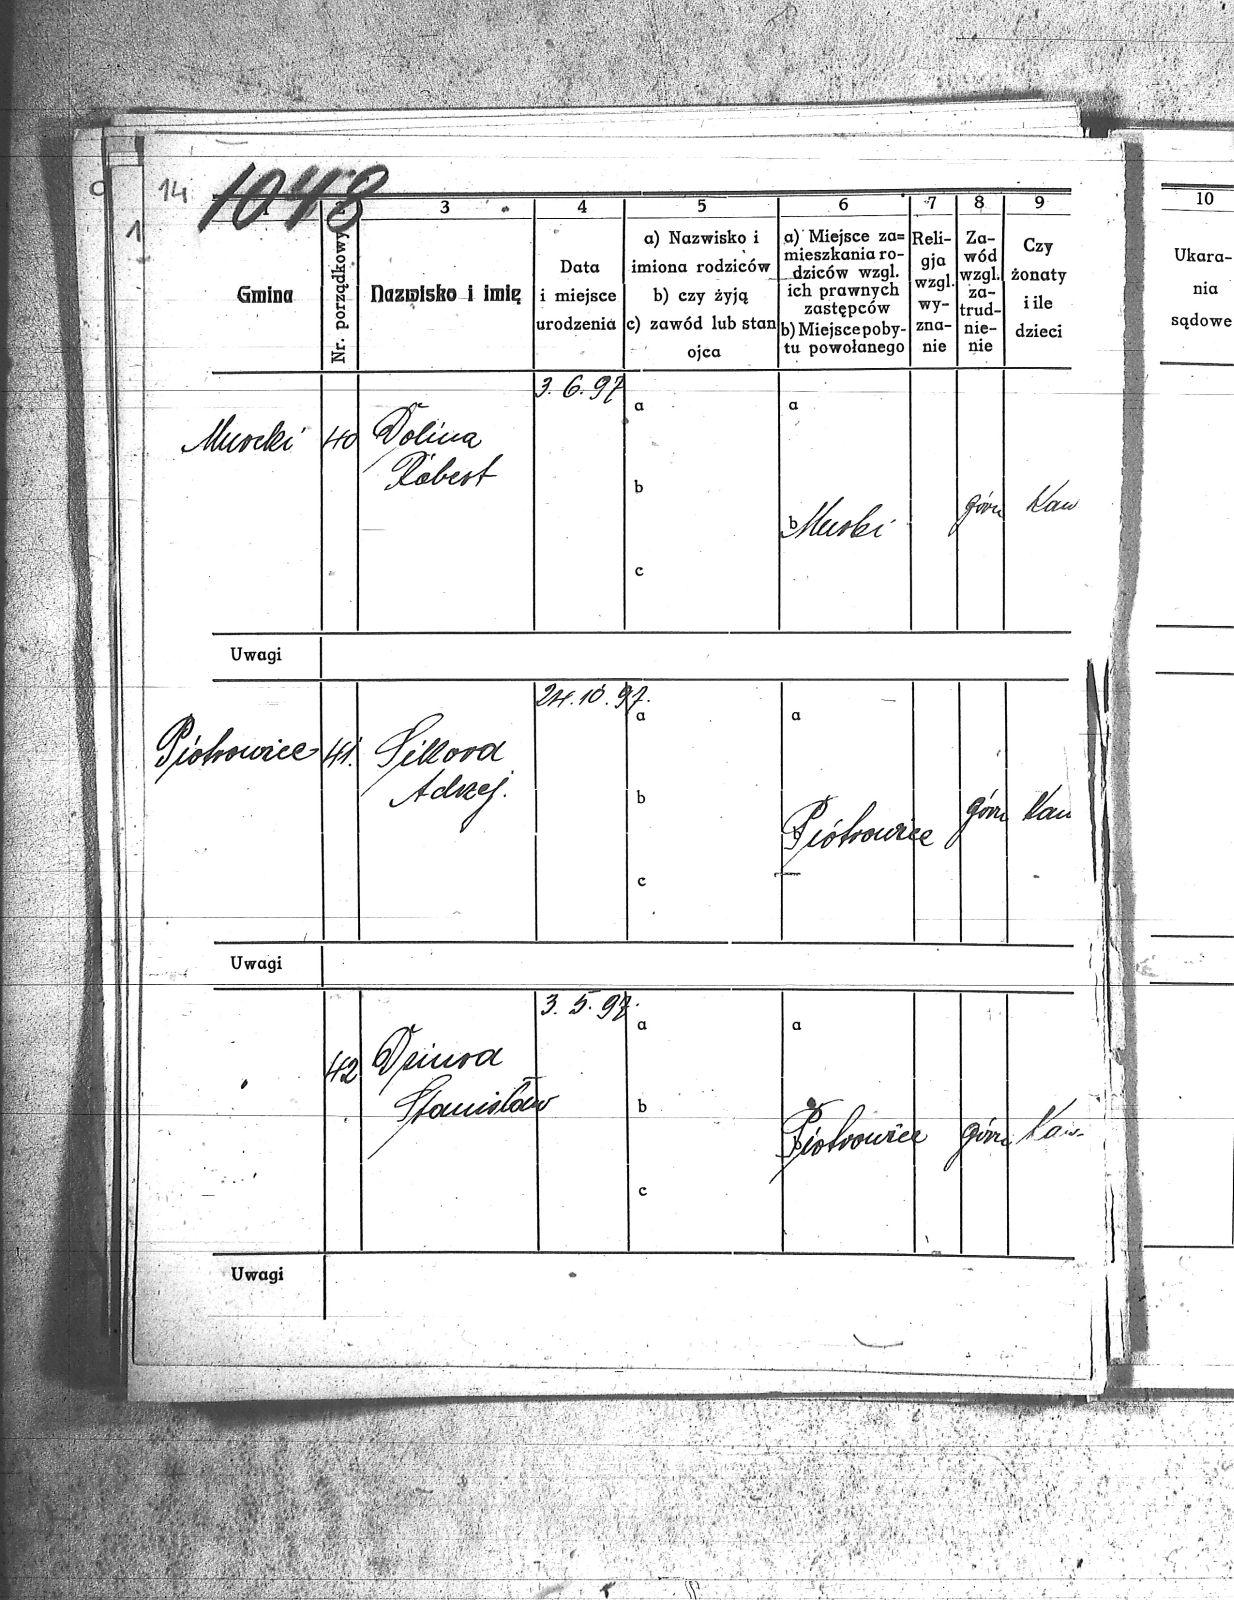 14
1048
1 2 3 4 5 6 7 8 9 10
Gmina
Nr. porządkowy
Nazwisko i imię
Data
i miejsce
urodzenia
a) Nazwisko i
imiona rodziców
b) czy żyją
c) zawód lub stan
ojca
a) Miejsce za=
mieszkania ro-
dziców wzgl.
ich prawnych
zastępców
b) Miejsce poby-
tu powołanego
Reli-
gja
wzgl.
wy-
zna-
nie
Za-
wód
wzgl.
za-
trud-
nie-
nie
Czy
żonaty
i ile
dzieci
Ukara-
nia
sądowe
3. 6. 97
a a
Murcki 40 Dolina
Robert
b
b Murcki górn Kaw
c
Uwagi
24. 10. 97.
a a
Piotrowice 41. Sikora
Adrzej.
b
b Piotrowice górn Kaw
c
Uwagi
3. 5. 97.
a a
42 Dziura
Stanisław
b
b Piotrowice górn Kaw.
c
Uwagi